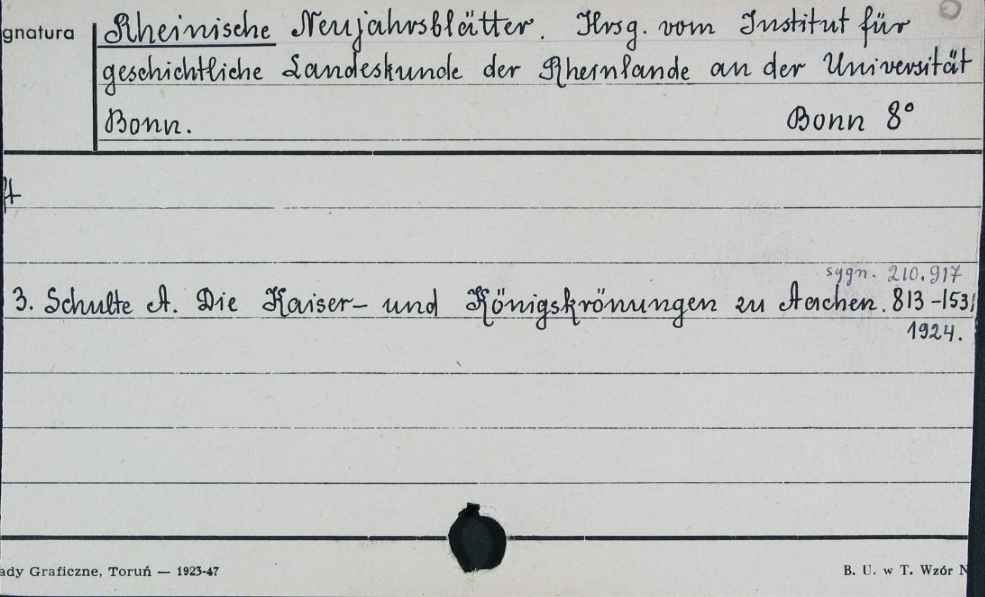 gnatura
Rheinische Neujahrsblätter. Hrsg. vom Institut für
geschichtliche Landeskunde der Rheinlande an der Universität
Bonn. Bonn 8°
sygn. 210.917
3. Schulte A. Die Kaiser- und Königskrönungen zu Aachen. 813-1531
1924.
ady Graficzne, Toruń — 1923-47
B. U. w T. Wzór N